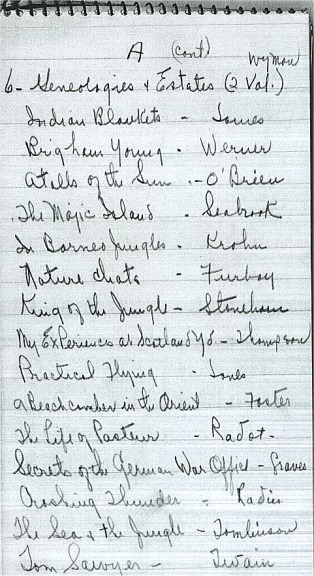 A (cont)
Wyman
6- Geneologies & Estates (2 Vol.)
Indian Blankets - James
Brigham Young - Werner
Atolls of the Sun - O'Brien
The Majic Island - Seabrook
In Borneo Jungles - Krohn
Nature Chats - Furbay
King of the Jungle - Stoneham
My Experiences at Scotland Yd - Thompson
Practical Flying - Jones
A Beachcomber in the Orient - Foster
The Life of Pasteur - Radot
Secrets of the German War Office - Graves
Crashing Thunder - Radin
The Sea & the Jungle - Tomlinson
Tom Sawyer - Twain